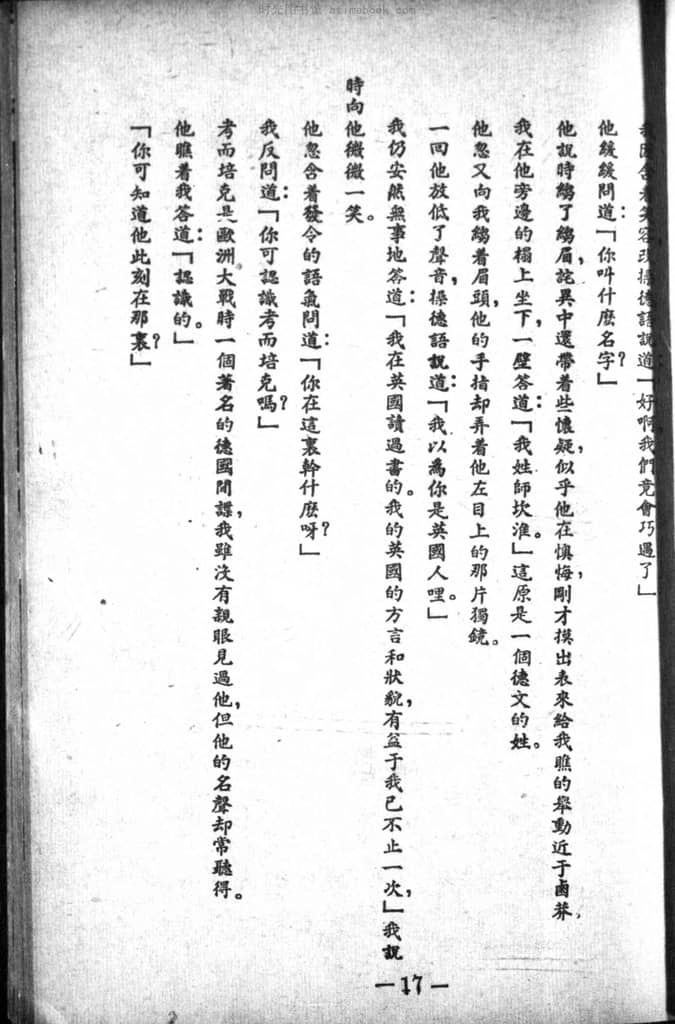 我因含着笑容改操德語說道「好啊我們竟會巧遇了」
他緩緩問道：「你叫什麽名字？」
他說時縐了縐眉，詫異中還帶着些懷疑，似乎他在懊悔，剛才摸出表來給我瞧的舉動近于鹵莽，
我在他旁邊的榻上坐下，一壁答道：「我姓師坎淮。」這原是一個德文的姓。
他忽又向我縐着眉頭，他的手指却弄着他左目上的那片獨鏡。
一囘他放低了聲音，操德語說道：「我以爲你是英國人哩。」
我仍安然無事地答道：「我在英國讀過書的。我的英國的方言和狀貌，有益于我已不止一次，」我說
時向他微微一笑。
他忽含着發令的語氣問道：「你在這裏幹什麽呀？」
我反問道：「你可認識考而培克嗎？」
考而培克是歐洲大戰時一個著名的德國間諜，我雖沒有親眼見過他，但他的名聲却常聽得。
他瞧着我答道：「認識的。」
「你可知道他此刻在那裏？」
—17—